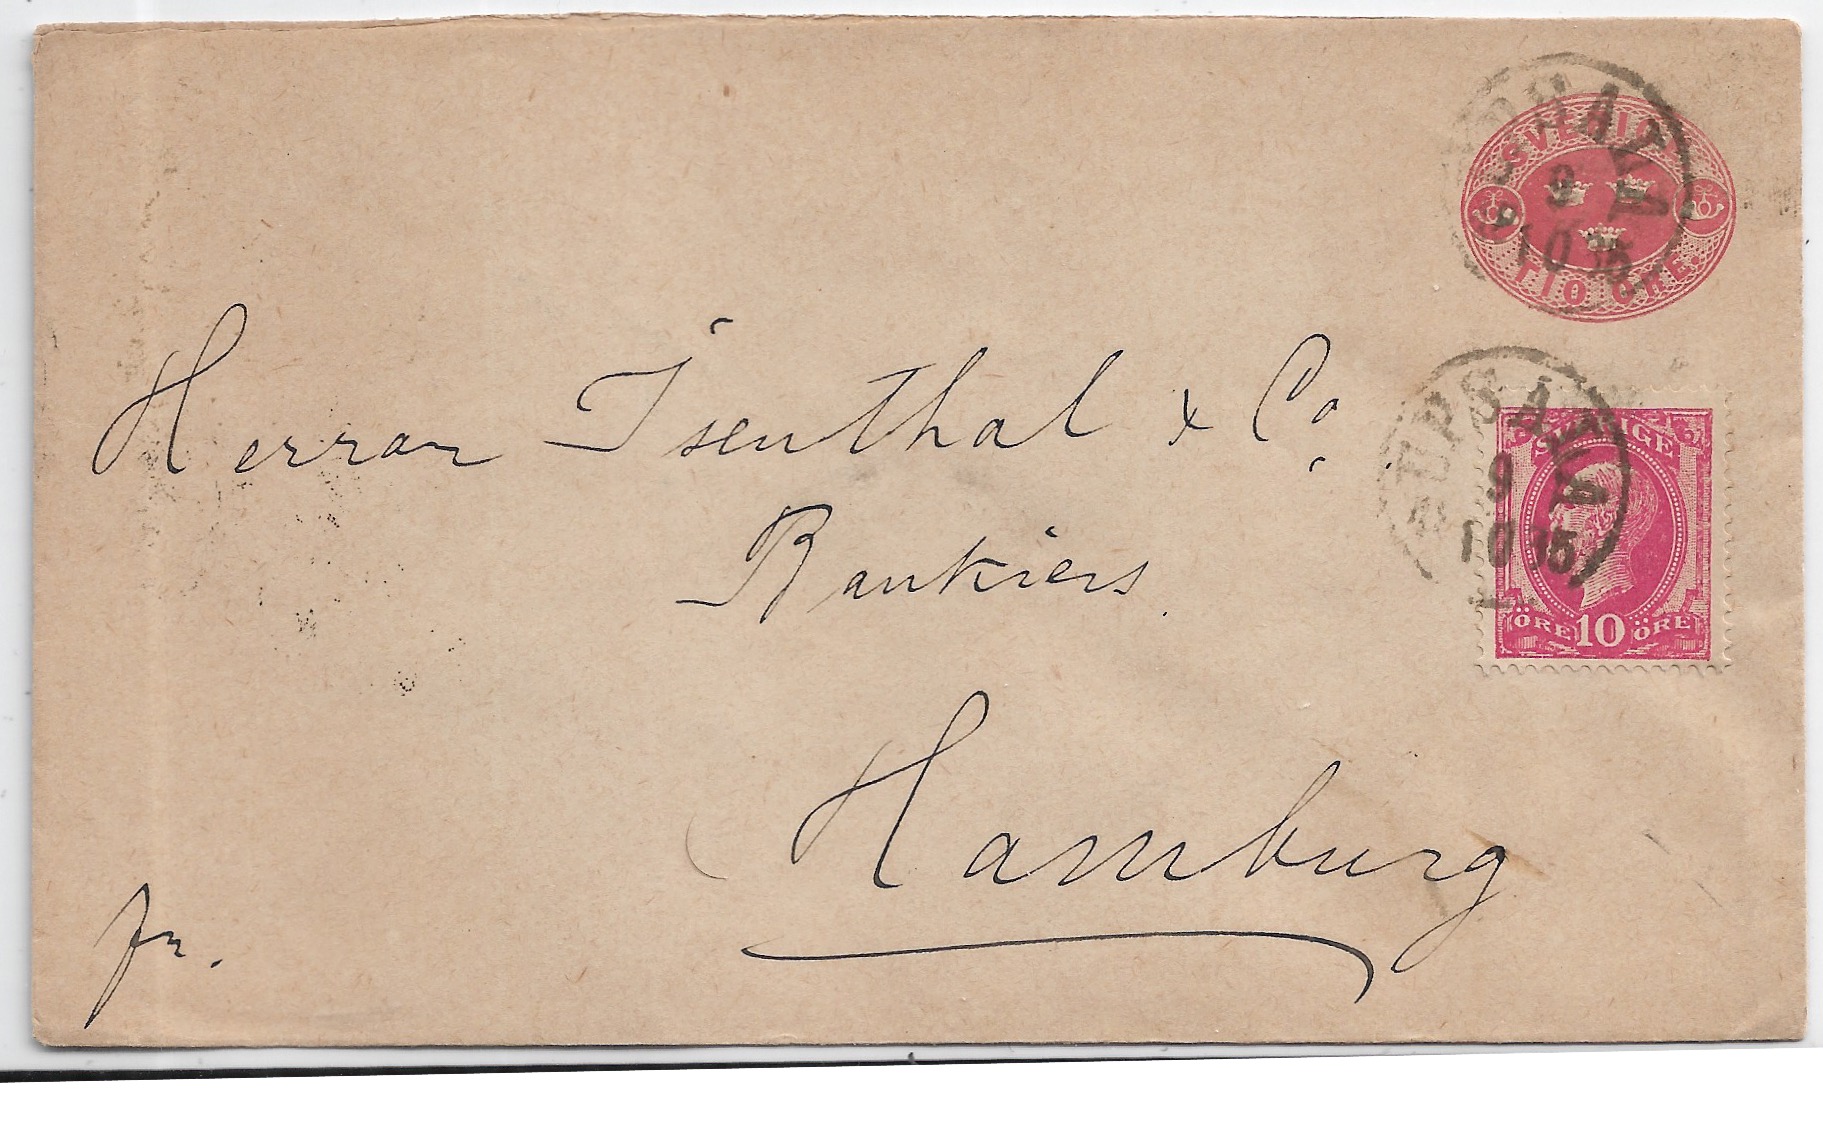 SVERIGE
TIO ÖRE.
UPSALA
9
10
UPSALA
9
10
SVERIGE
ÖRE 10 ÖRE
Herren Isenthal & Co.
Bankiers.
Hamburg
fr.